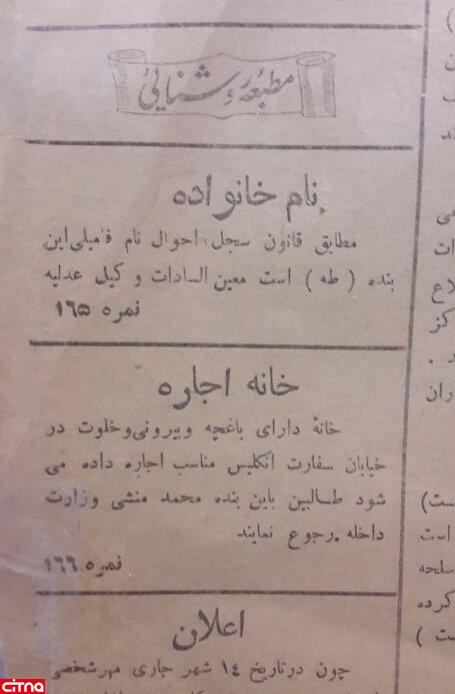 مطبعهٔ روشنائی
نام خانواده
مطابق قانون سجل احوال نام فامیلی این
بنده ( طه ) است معین السادات و کیل عدلیه
نمره ۱۶۵
خانه اجاره
خانهٔ دارای باغچه و بیرونی و خلوت در
خیابان سفارت انگلیس مناسب اجاره داده می
شود طالبین باین بنده محمد منشی وزارت
داخله رجوع نمایند
نمره ۱۶۶
اعلان
چون در تاریخ ۱۴ شهر جاری مهر شخصی
می
ات
لاع
کز
د .
ران
ست)
است
سلحه
کرده
ست )
citna